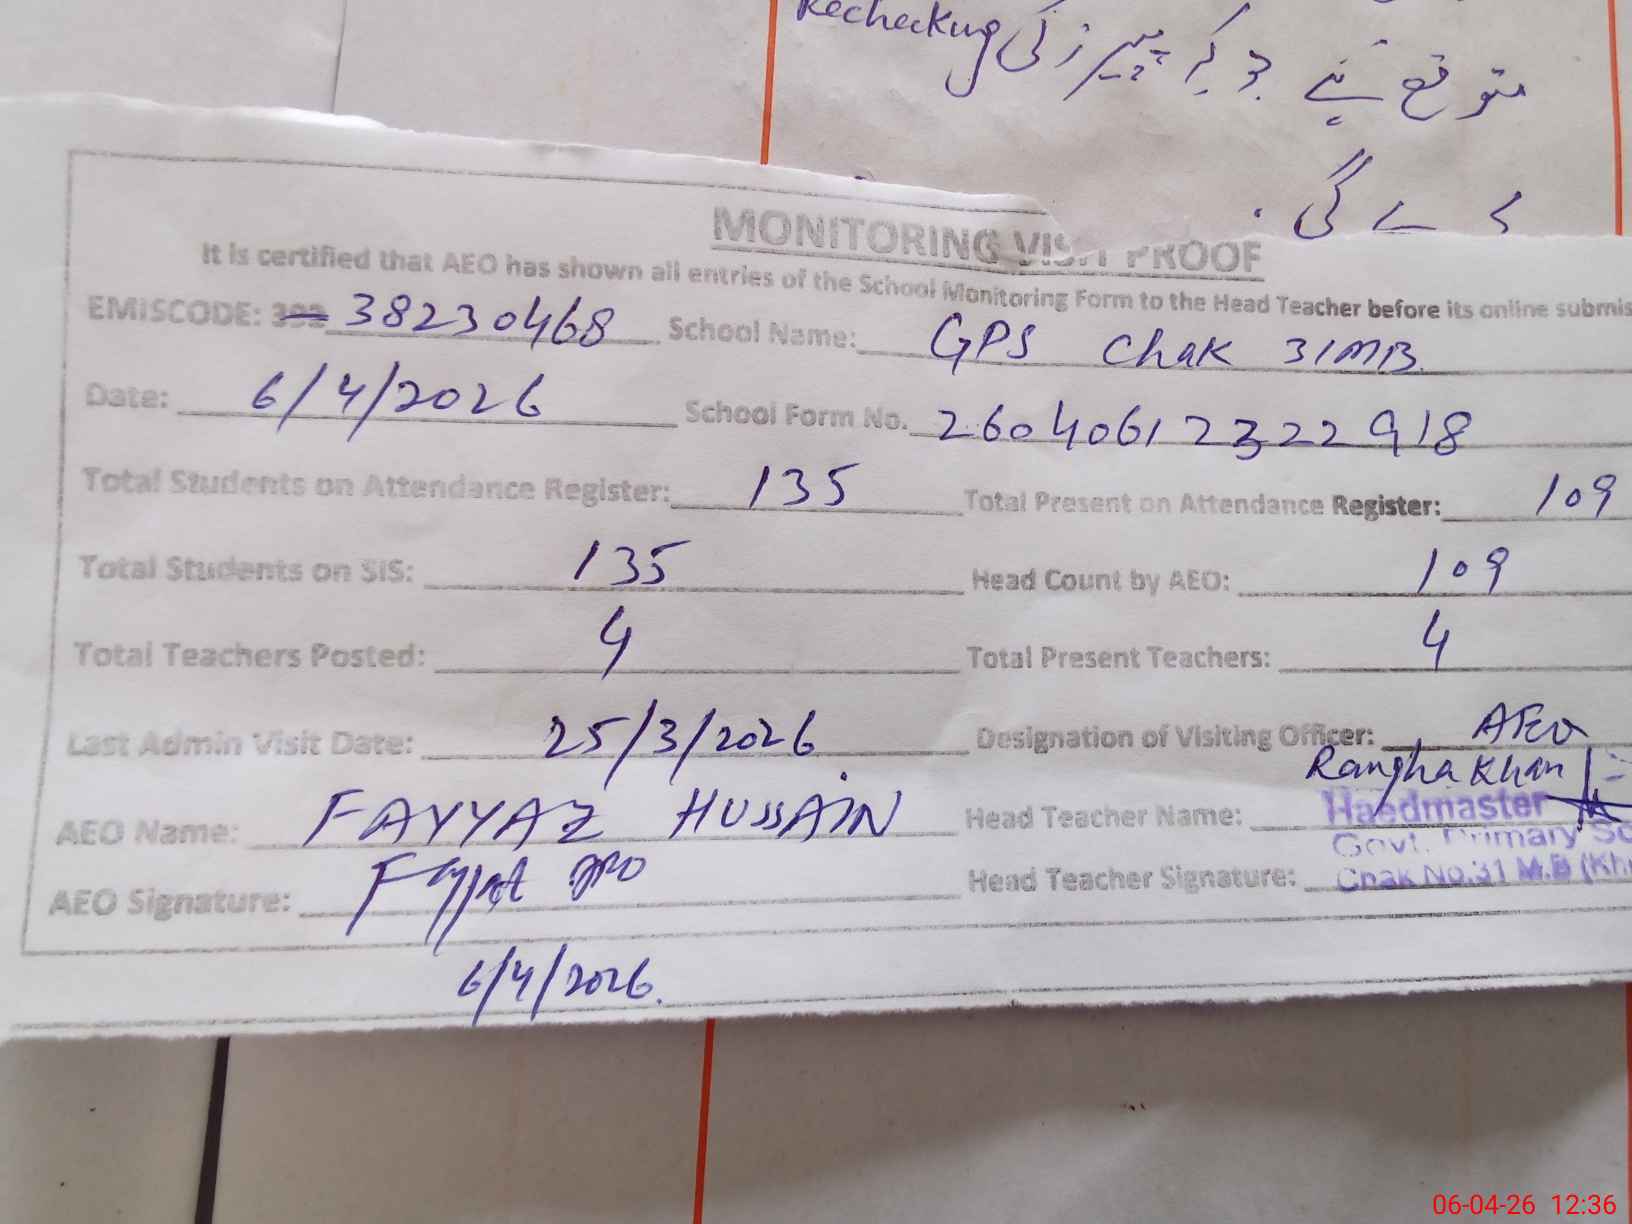 Rechecking توقع ہے کہ پیپرز کی
کے گی
MONITORING VISIT PROOF
It is certified that AEO has shown all entries of the School Monitoring Form to the Head Teacher before its online submis
EMISCODE: 38230468 School Name: GPS Chak 31MB
Date: 6/4/2026 School Form No. 26040612322918
Total Students on Attendance Register: 135 Total Present on Attendance Register: 109
Total Students on SIS: 135 Head Count by AEO: 109
Total Teachers Posted: 4 Total Present Teachers: 4
Last Admin Visit Date: 25/3/2026 Designation of Visiting Officer: AEO
Rangha Khan
AEO Name: FAYYAZ HUSSAIN Head Teacher Name: Haedmaster
Govt. Primary Sc
AEO Signature: Head Teacher Signature: Chak No.31 M.B (Kh
6/4/2026.
06-04-26 12:36